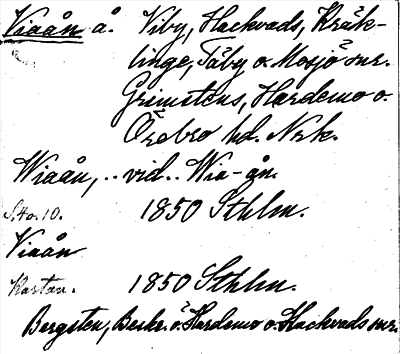 Viaån å. Viby, Hackvads, Kräk-
linge, Täby o. Mosjö snr.
Grimstens, Hardemo o.
Örebro hd. Nrk.
Wiaån, .. vid .. Wia-ån.
S.to.10. 1850 Sthlm.
Viaån
Kartan. 1850 Sthlm.
Bergsten, Beskr. ö. Hardemo o. Hackvads snr.